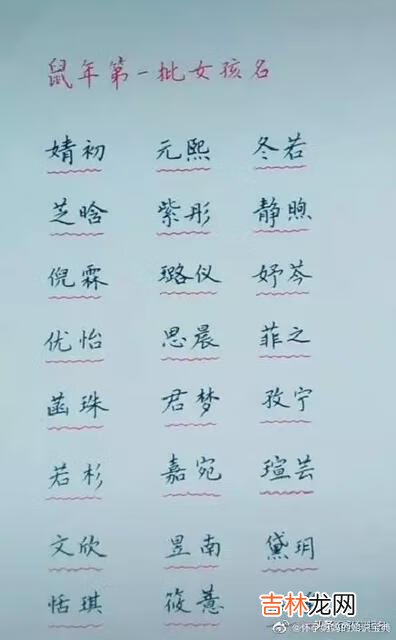 鼠年第一批女孩名
婧初 元熙 冬若
芝晗 紫彤 静煦
倪霖 璐仪 妤芩
优怡 思晨 菲之
菡珠 君梦 孜宁
若杉 嘉宛 瑄芸
文欣 昱南 黛玥
恬琪 筱薏
吉林龙网